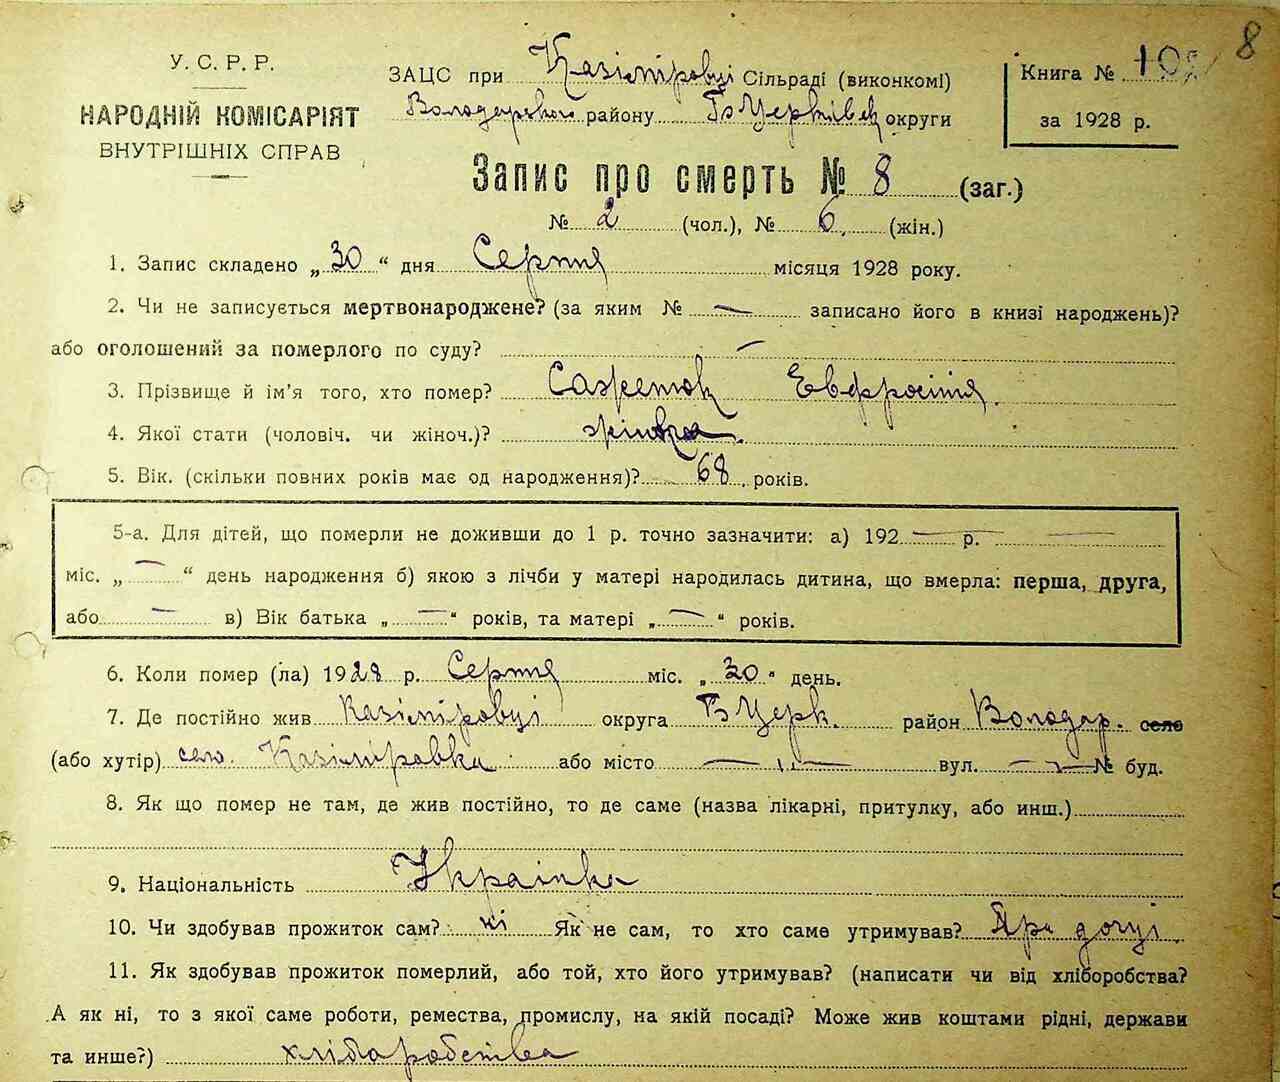 8
У. С. Р. Р.
НАРОДНІЙ КОМІСАРІЯТ
ВНУТРІШНІХ СПРАВ
ЗАЦС при Казіміровці Сільраді (виконкомі)
Володарського району Б Церківск округи
Книга №
за 1928 р.
Запис про смерть № 8 (заг.)
№ 2 (чол.), № 6, (жін.)
1. Запис складено „30“ дня Серпня місяця 1928 року.
2. Чи не записується мертвонароджене? (за яким № — записано його в книзі народжень)?
або оголошений за померлого по суду? —
3. Прізвище й ім’я того, хто помер? Сажеток Евфросінія.
4. Якої стати (чоловіч. чи жіноч.)? жінка.
5. Вік. (скільки повних років має од народження)? 68 років.
5-а. Для дітей, що померли не доживши до 1 р. точно зазначити: а) 192 — р. —
міс. „ — “ день народження б) якою з лічби у матері народилась дитина, що вмерла: перша, друга,
або — в) Вік батька „ — “ років, та матері „ — “ років.
6. Коли помер (ла) 1928 р. Серпня міс. „30“ день.
7. Де постійно жив Казіміровці округа Б Церк. район Володар. село
(або хутір) село. Казіміровка або місто — „ — вул. — „ — № буд.
8. Як що помер не там, де жив постійно, то де саме (назва лікарні, притулку, або инш.)
9. Національність Українка
10. Чи здобував прожиток сам? ні Як не сам, то хто саме утримував? При дочці.
11. Як здобував прожиток померлий, або той, хто його утримував? (написати чи від хліборобства?
А як ні, то з якої саме роботи, ремества, промислу, на якій посаді? Може жив коштами рідні, держави
та инше?) хліборобства